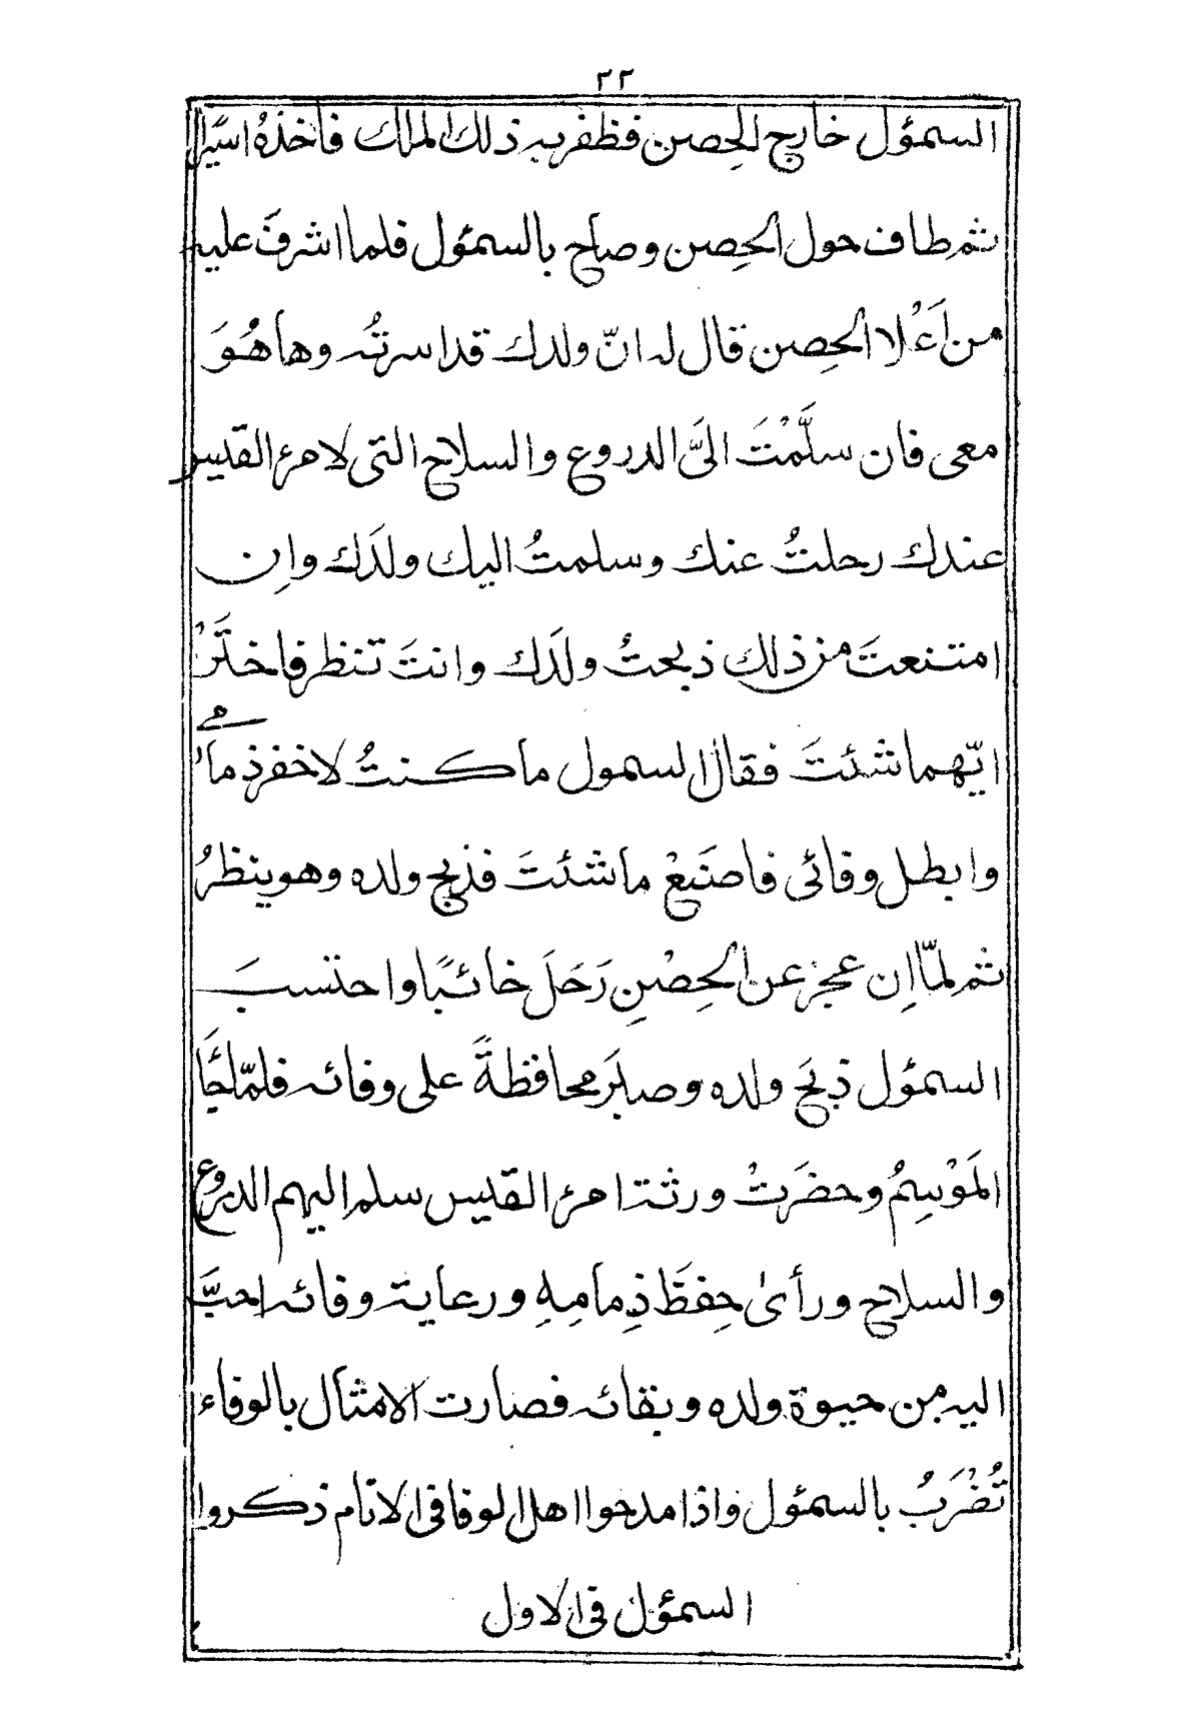 ٢٢
السمؤل خارج الحِصن فظفر به ذلك الملك فاخذهُ اسيرًا
ثم طاف حول الحِصن وصاح بالسمؤل فلما اشرفَ عليه
من اَعْلا الحِصن قال له انّ ولدك قد اسرتُه وها هُوَ
معى فان سلَّمْتَ الىَّ الدروع والسلاح التى لامرء القيس
عندك رحلتُ عنك وسلمتُ اليك ولدَك واِن
امتنعتَ من ذلك ذبحتُ ولدَك وانتَ تنظر فاختَرْ
ايّهما شئتَ فقال السمول ما كنتُ لاخفر ذمامي
وابطل وفائى فاصنَعْ ما شئتَ فذبح ولده وهو ينظرُ
ثم لمّا اِن عجز عن الحِصْنِ رَحَلَ خائبًا واحتسبَ
السمؤل ذبحَ ولده وصبرَ محافظةً على وفائه فلمّا جَاَ
المَوْسِمُ وحضَرَتْ ورثة امرء القيس سلم اليهم الدروع
والسلاح ورأىٰ حِفظَ ذِمامِهِ ورعاية وفائه احبَّ
اليه من حيوة ولده وبقائه فصارت الامثال بالوفاء
تُضْرَبُ بالسمؤل واذا مدحوا اهل الوفا فى الانام ذكروا
السمؤل فى الاول